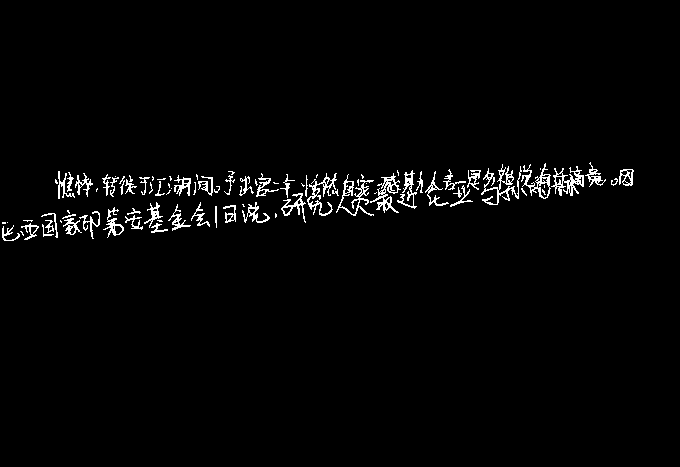 憔悴,转徙于江湖间。予出官二年,恬然自安,感斯人言,是夕始觉有迁谪意。因
巴西国家印第安基金会1日说,研究人员最近在亚马孙